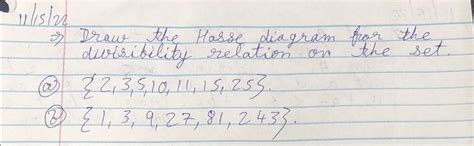 11/15/22
⇒ Draw the Hasse diagram for the
divisibility relation on the set.
(a) {2,3,5,10,11,15,25}.
(b) {1, 3, 9, 27, 81, 243}.